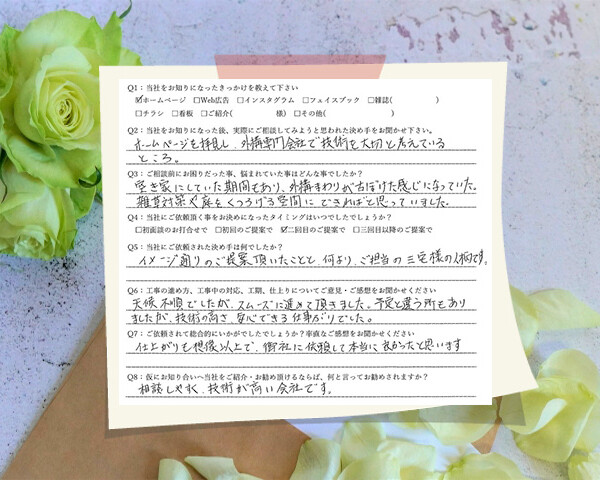 Q1：当社をお知りになったきっかけを教えて下さい
☑ホームページ □Web広告 □インスタグラム □フェイスブック □雑誌( )
□チラシ □看板 □ご紹介( 様) □その他( )
Q2：当社をお知りになった後、実際にご相談してみようと思われた決め手をお聞かせ下さい。
ホームページを拝見し、外構専門会社で技術を大切と考えている
ところ。
Q3：ご相談前にお困りだった事、悩まれていた事はどんな事でしたか？
空き家にしていた期間もあり、外構まわりが古ぼけた感じになっていた。
雑草対策や庭をくつろげる空間にできればと思っていました。
Q4：当社にご依頼頂く事をお決めになったタイミングはいつでしたでしょうか？
□初面談のお打合せで □初回のご提案で ☑二回目のご提案で □三回目以降のご提案で
Q5：当社にご依頼された決め手は何でしたか？
イメージ通りのご提案頂いたことと、何より、ご担当の三宅様の人柄です。
Q6：工事の進め方、工事中の対応、工期、仕上りについてご意見・ご感想をお聞かせください
天候不順でしたが、スムーズに進めて頂きました。予定と違う所もあり
ましたが、技術の高さ、安心できる仕事ぶりでした。
Q7：ご依頼されて総合的にいかがでしたでしょうか？率直なご感想をお聞かせください
仕上がりも想像以上で、御社に依頼して本当に良かったと思います
Q8：仮にお知り合いへ当社をご紹介・お勧め頂けるならば、何と言ってお勧めされますか？
相談しやすく、技術が高い会社です。